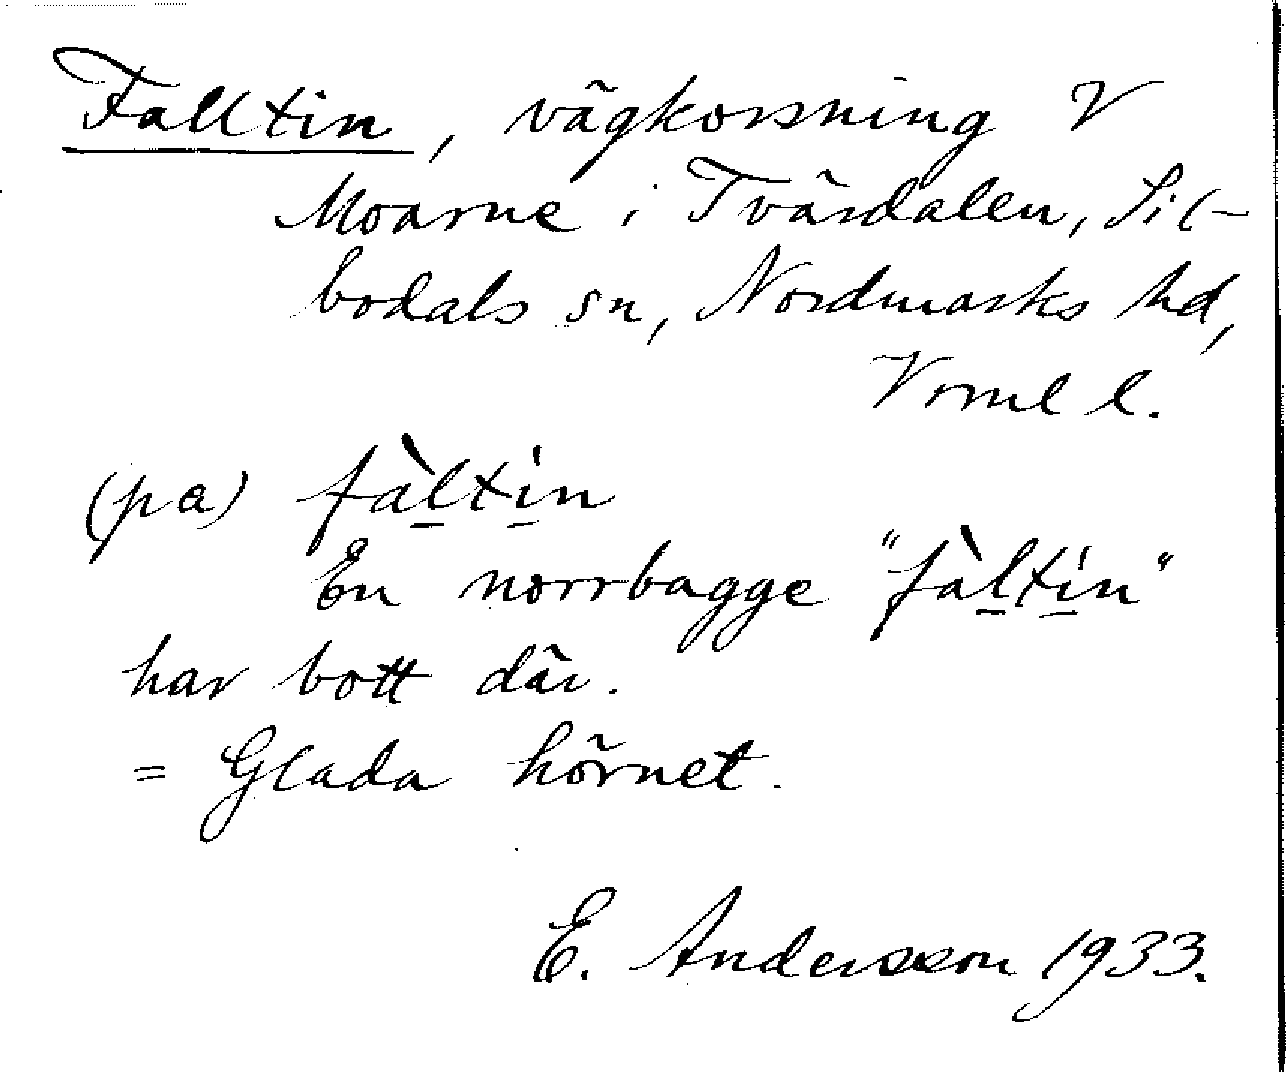 Falltin, vägkorsning V
Moarne i Tvärdalen, Sil-
bodals sn, Nordmarks hd,
Vrml l.
(pa) fàl̲tìn
En norrbagge "fàl̲tìn"
har bott där.
= Glada hörnet.
E. Andersson 1933.